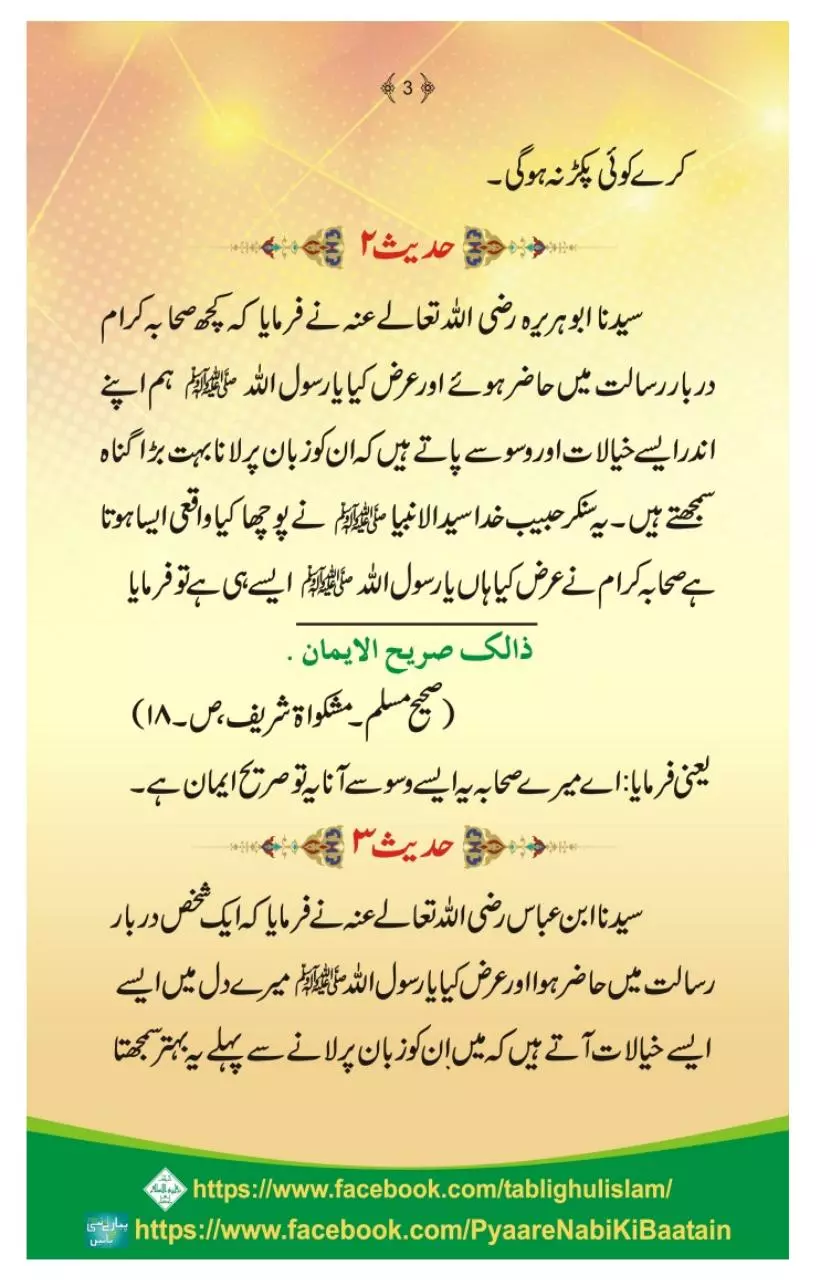 3
کرے کوئی پکڑ نہ ہوگی۔
حدیث ۲
سیدنا ابو ہریرہ رضی اللہ تعالے عنہ نے فرمایا کہ کچھ صحابہ کرام
دربار رسالت میں حاضر ہوئے اور عرض کیا یا رسول اللہ ﷺ ہم اپنے
اندر ایسے خیالات اور وسوسے پاتے ہیں کہ ان کو زبان پر لانا بہت بڑا گناہ
سمجھتے ہیں۔ یہ سنکر حبیب خدا سید الانبیا ﷺ نے پوچھا کیا واقعی ایسا ہوتا
ہے صحابہ کرام نے عرض کیا ہاں یا رسول اللہ ﷺ ایسے ہی ہے تو فرمایا
ذالک صریح الایمان .
(صحیح مسلم۔ مشکواۃ شریف، ص۔ ۱۸)
یعنی فرمایا: اے میرے صحابہ یہ ایسے وسوسے آنا یہ تو صریح ایمان ہے۔
حدیث ۳
سیدنا ابن عباس رضی اللہ تعالے عنہ نے فرمایا کہ ایک شخص دربار
رسالت میں حاضر ہوا اور عرض کیا یا رسول اللہ ﷺ میرے دل میں ایسے
ایسے خیالات آتے ہیں کہ میں اِن کو زبان پر لانے سے پہلے یہ بہتر سمجھتا
https://www.facebook.com/tablighulislam/
پیارے نبی کی باتیں https://www.facebook.com/PyaareNabiKiBaatain